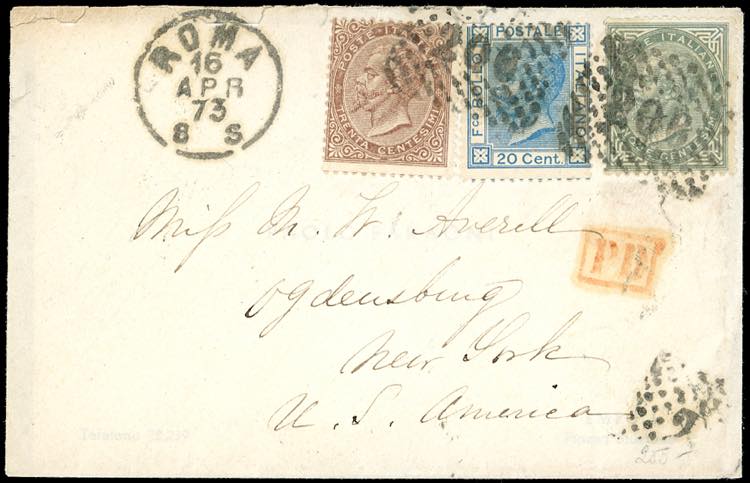 ROMA
16
APR
73
8 S
POSTE ITALIANE
TRENTA CENTESIMI
POSTALE
Fco BOLLO
ITALIANO
20 Cent.
ITALIANE
CENTESIMI
Miss M. W. Averell
PD
Ogdensburg
New York
U. S. America
Telefono
255